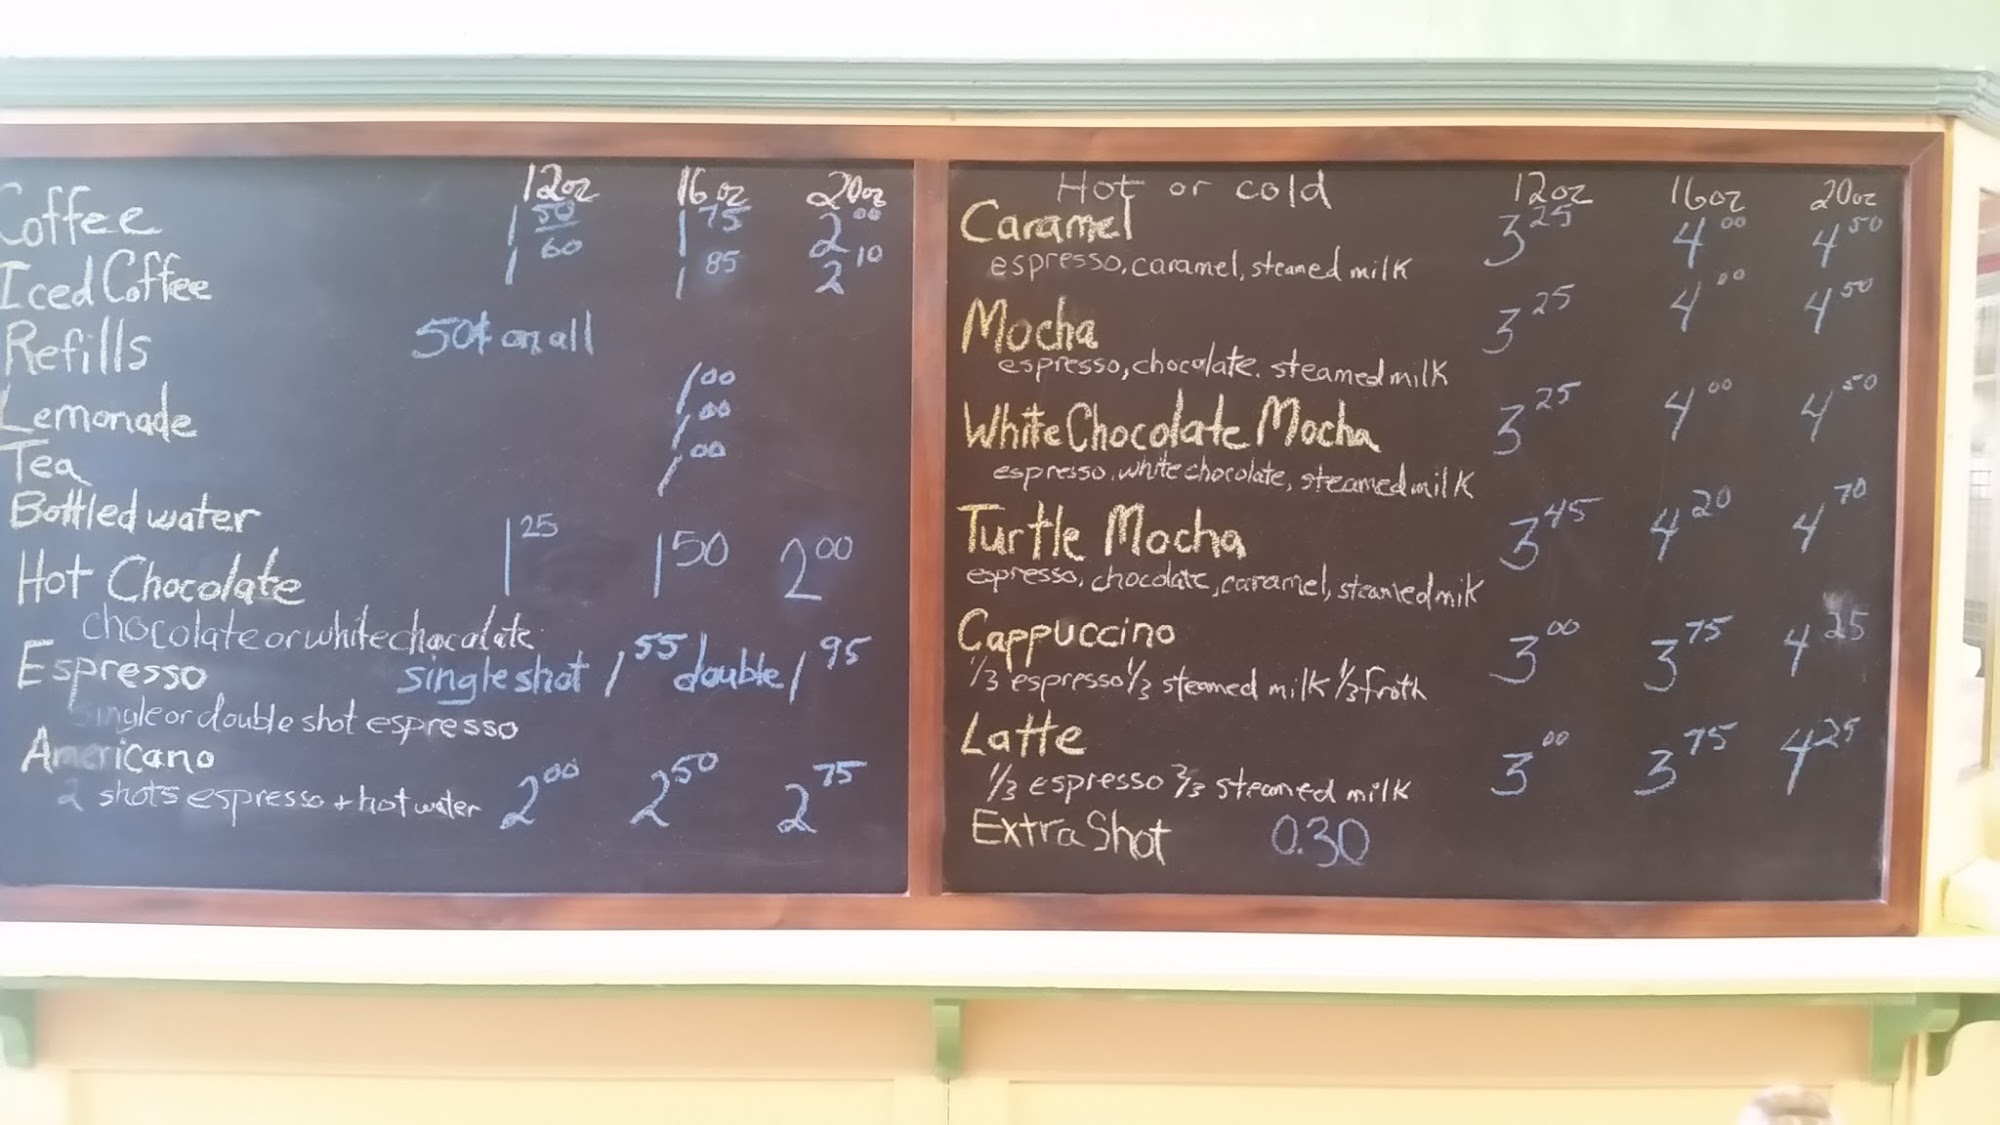 12oz 16oz 20oz
Coffee 1 50 1 75 2 00
Iced Coffee 1 60 1 85 2 10
Refills 50¢ on all
Lemonade 1 00
Tea 1 00
Bottled water 1 00
Hot Chocolate 1 25 1 50 2 00
chocolate or white chocolate
Espresso single shot 1 55 double 1 95
single or double shot espresso
Americano 2 00 2 50 2 75
2 shots espresso + hot water
Hot or cold 12oz 16oz 20oz
Caramel 3 25 4 00 4 50
espresso, caramel, steamed milk
Mocha 3 25 4 00 4 50
espresso, chocolate. steamed milk
White Chocolate Mocha 3 25 4 00 4 50
espresso, white chocolate, steamed milk
Turtle Mocha 3 45 4 20 4 70
espresso, chocolate, caramel, steamed milk
Cappuccino 3 00 3 75 4 25
1/3 espresso 1/3 steamed milk 1/3 froth
Latte 3 00 3 75 4 25
1/3 espresso 2/3 steamed milk
Extra Shot 0.30